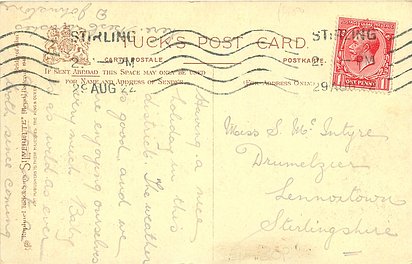 STIRLING
29 AUG 22
TUCK'S POST CARD.
CARTE POSTALE
POSTKARTE
IF SENT ABROAD THIS SPACE MAY ONLY BE USED
FOR NAME AND ADDRESS OF SENDER.
(FOR ADDRESS ONLY.)
STIRLING
29 AUG
ONE PENNY
Having a nice
holiday in this
district. The weather
is good, and we
are enjoying ourselves
very much. Baby
is as wild as ever
since coming
Johnstone
Miss S. McIntyre
Drumelzier
Lennoxtown
Stirlingshire